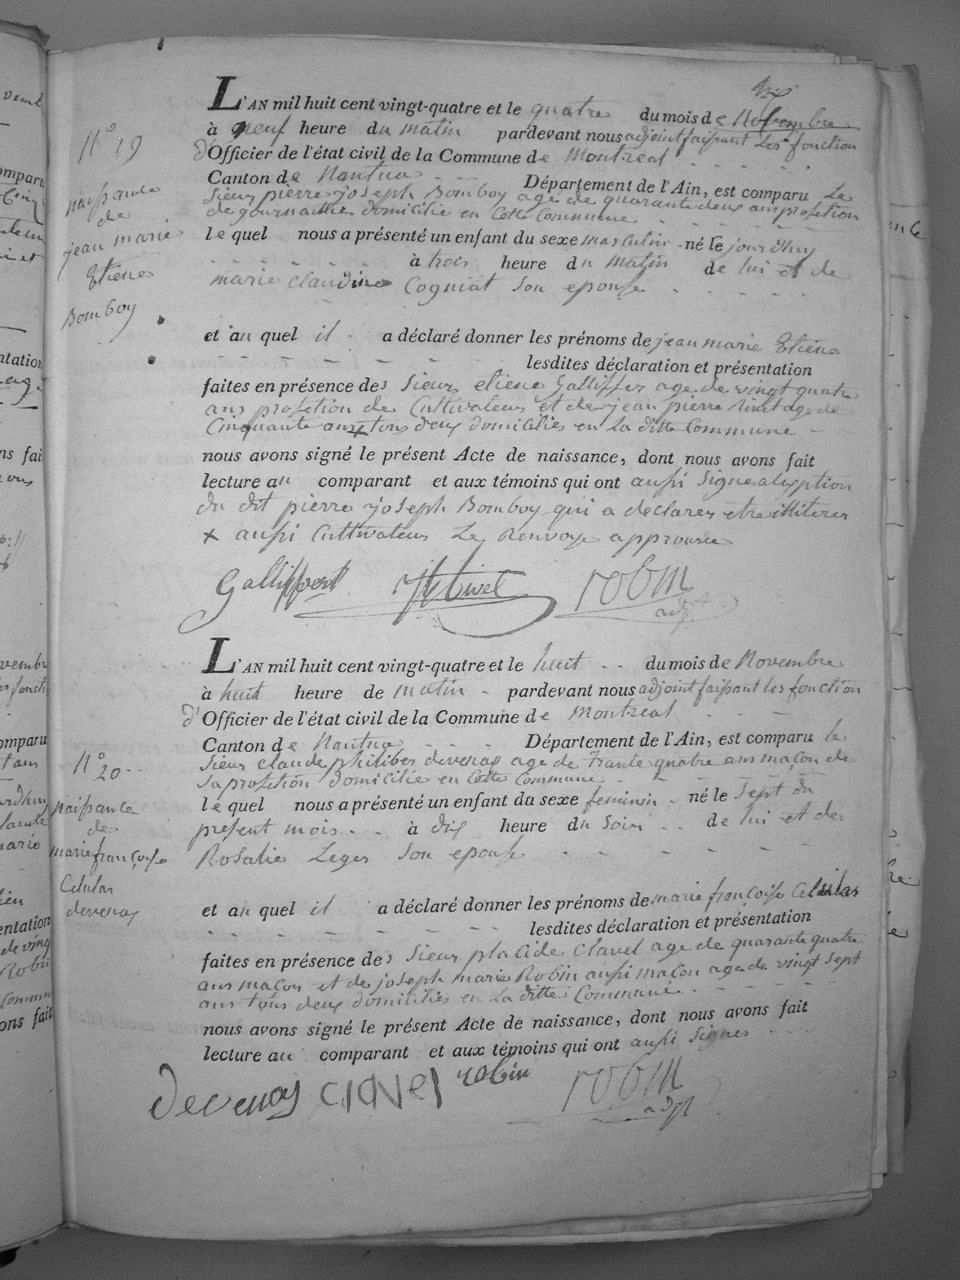 N° 19
naissance
de
jean marie
Etiene
Bomboy
L'AN mil huit cent vingt-quatre et le quatre du mois de Novembre
à neuf heure du matin pardevant nous adjoint faissant les fonction
d'Officier de l'état civil de la Commune de Montreal
Canton de Nantua Département de l'Ain, est comparu Le
Sieur pierre joseph Bomboy age de quarante deux ans profetion
de journallier domicilié en Cette Commune
le quel nous a présenté un enfant du sexe masculin né le jourdhuy
à trois heure du matin de lui et de
marie claudine Cogniat Son epouse
et au quel il a déclaré donner les prénoms de jean marie Etiene
lesdites déclaration et présentation
faites en présence des Sieurs etiene Galliffet age de vingt quatre
ans profetion de Cultivateur et de jean pierre livet age de
Cinquante ans + tous deux domiciliés en La ditte Commune
nous avons signé le présent Acte de naissance, dont nous avons fait
lecture au comparant et aux témoins qui ont aussi Signe
du dit pierre joseph Bomboy qui a declarer etre illiteres
+ aussi Cultivateur Le Renvoye approuvee
Galliffet livet robin
adjt
N° 20
naissance
de
marie françoise
Celulas
devenas
L'AN mil huit cent vingt-quatre et le huit du mois de Novembre
à huit heure de matin pardevant nous adjoint faissant les fonction
d'Officier de l'état civil de la Commune de Montreal
Canton de Nantua Département de l'Ain, est comparu le
Sieur claude philiber devenas age de Trante quatre ans maçon de
Sa profetion domicilié en Cette Commune
le quel nous a présenté un enfant du sexe feminin né le Sept du
present mois à dix heure du Soir de lui et de
Rosalie Leger Son epouse
et au quel il a déclaré donner les prénoms de marie françoise Celulas
lesdites déclaration et présentation
faites en présence des Sieur placide Clavel age de quarante quatre
ans maçon et de joseph marie Robin aussi maçon age de vingt Sept
ans tous deux domiciliés en La ditte Commune
nous avons signé le présent Acte de naissance, dont nous avons fait
lecture au comparant et aux témoins qui ont aussi Signes
devenas clavel robin robin
adjt